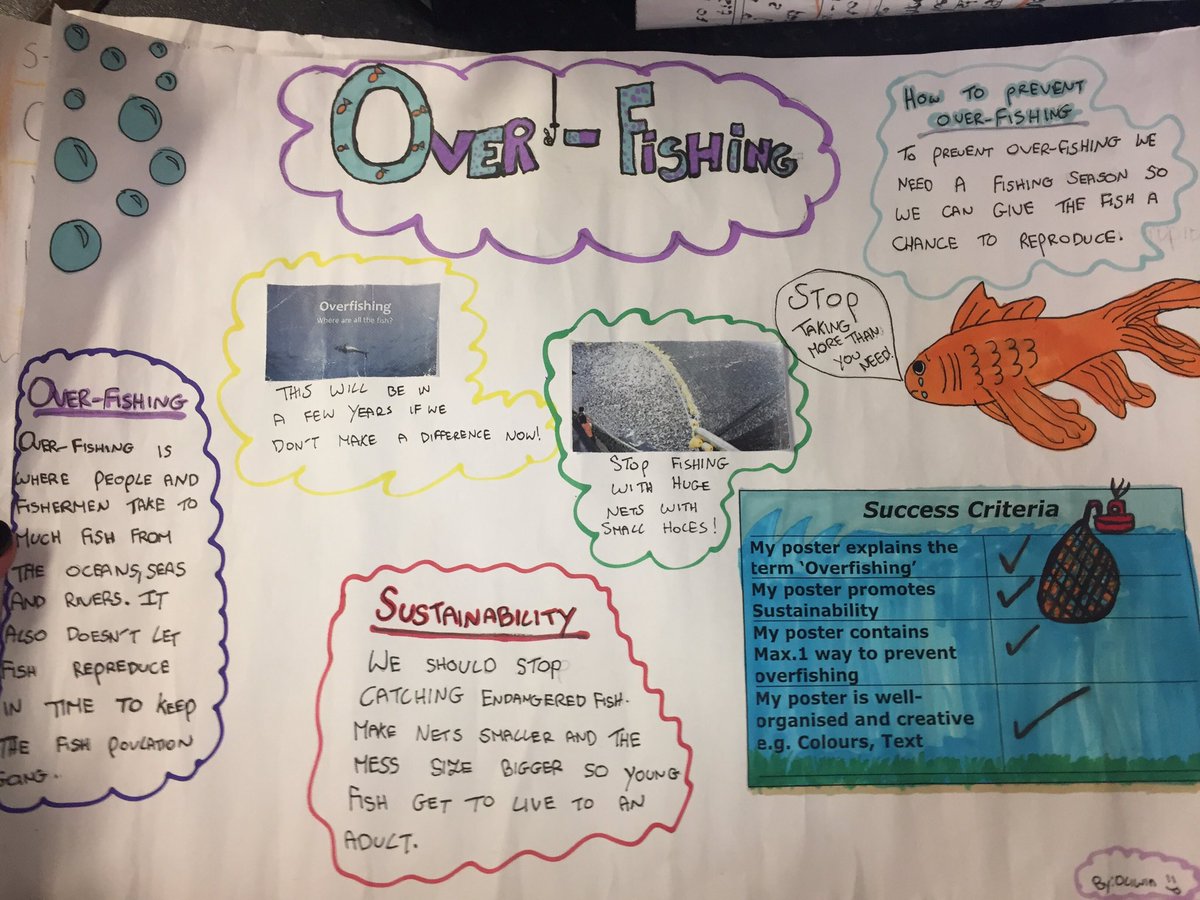 OVER-FISHING
HOW TO PREVENT
OVER-FISHING
TO PREVENT OVER-FISHING WE
NEED A FISHING SEASON SO
WE CAN GIVE THE FISH A
CHANCE TO REPRODUCE.
Overfishing
Where are all the fish?
THIS WILL BE IN
A FEW YEARS IF WE
DON'T MAKE A DIFFERENCE NOW!
STOP FISHING
WITH HUGE
NETS WITH
SMALL HOLES!
STOP
TAKING
MORE THAN
YOU NEED!
OVER-FISHING
OVER-FISHING IS
WHERE PEOPLE AND
FISHERMEN TAKE TO
MUCH FISH FROM
THE OCEANS, SEAS
AND RIVERS. IT
ALSO DOESN'T LET
FISH REPREDUCE
IN TIME TO KEEP
THE FISH POULATION
GOING.
SUSTAINABILITY
WE SHOULD STOP
CATCHING ENDANGERED FISH.
MAKE NETS SMALLER AND THE
MESS SIZE BIGGER SO YOUNG
FISH GET TO LIVE TO AN
ADULT.
Success Criteria
My poster explains the
term 'Overfishing'
My poster promotes
Sustainability
My poster contains
Max.1 way to prevent
overfishing
My poster is well-
organised and creative
e.g. Colours, Text
By: